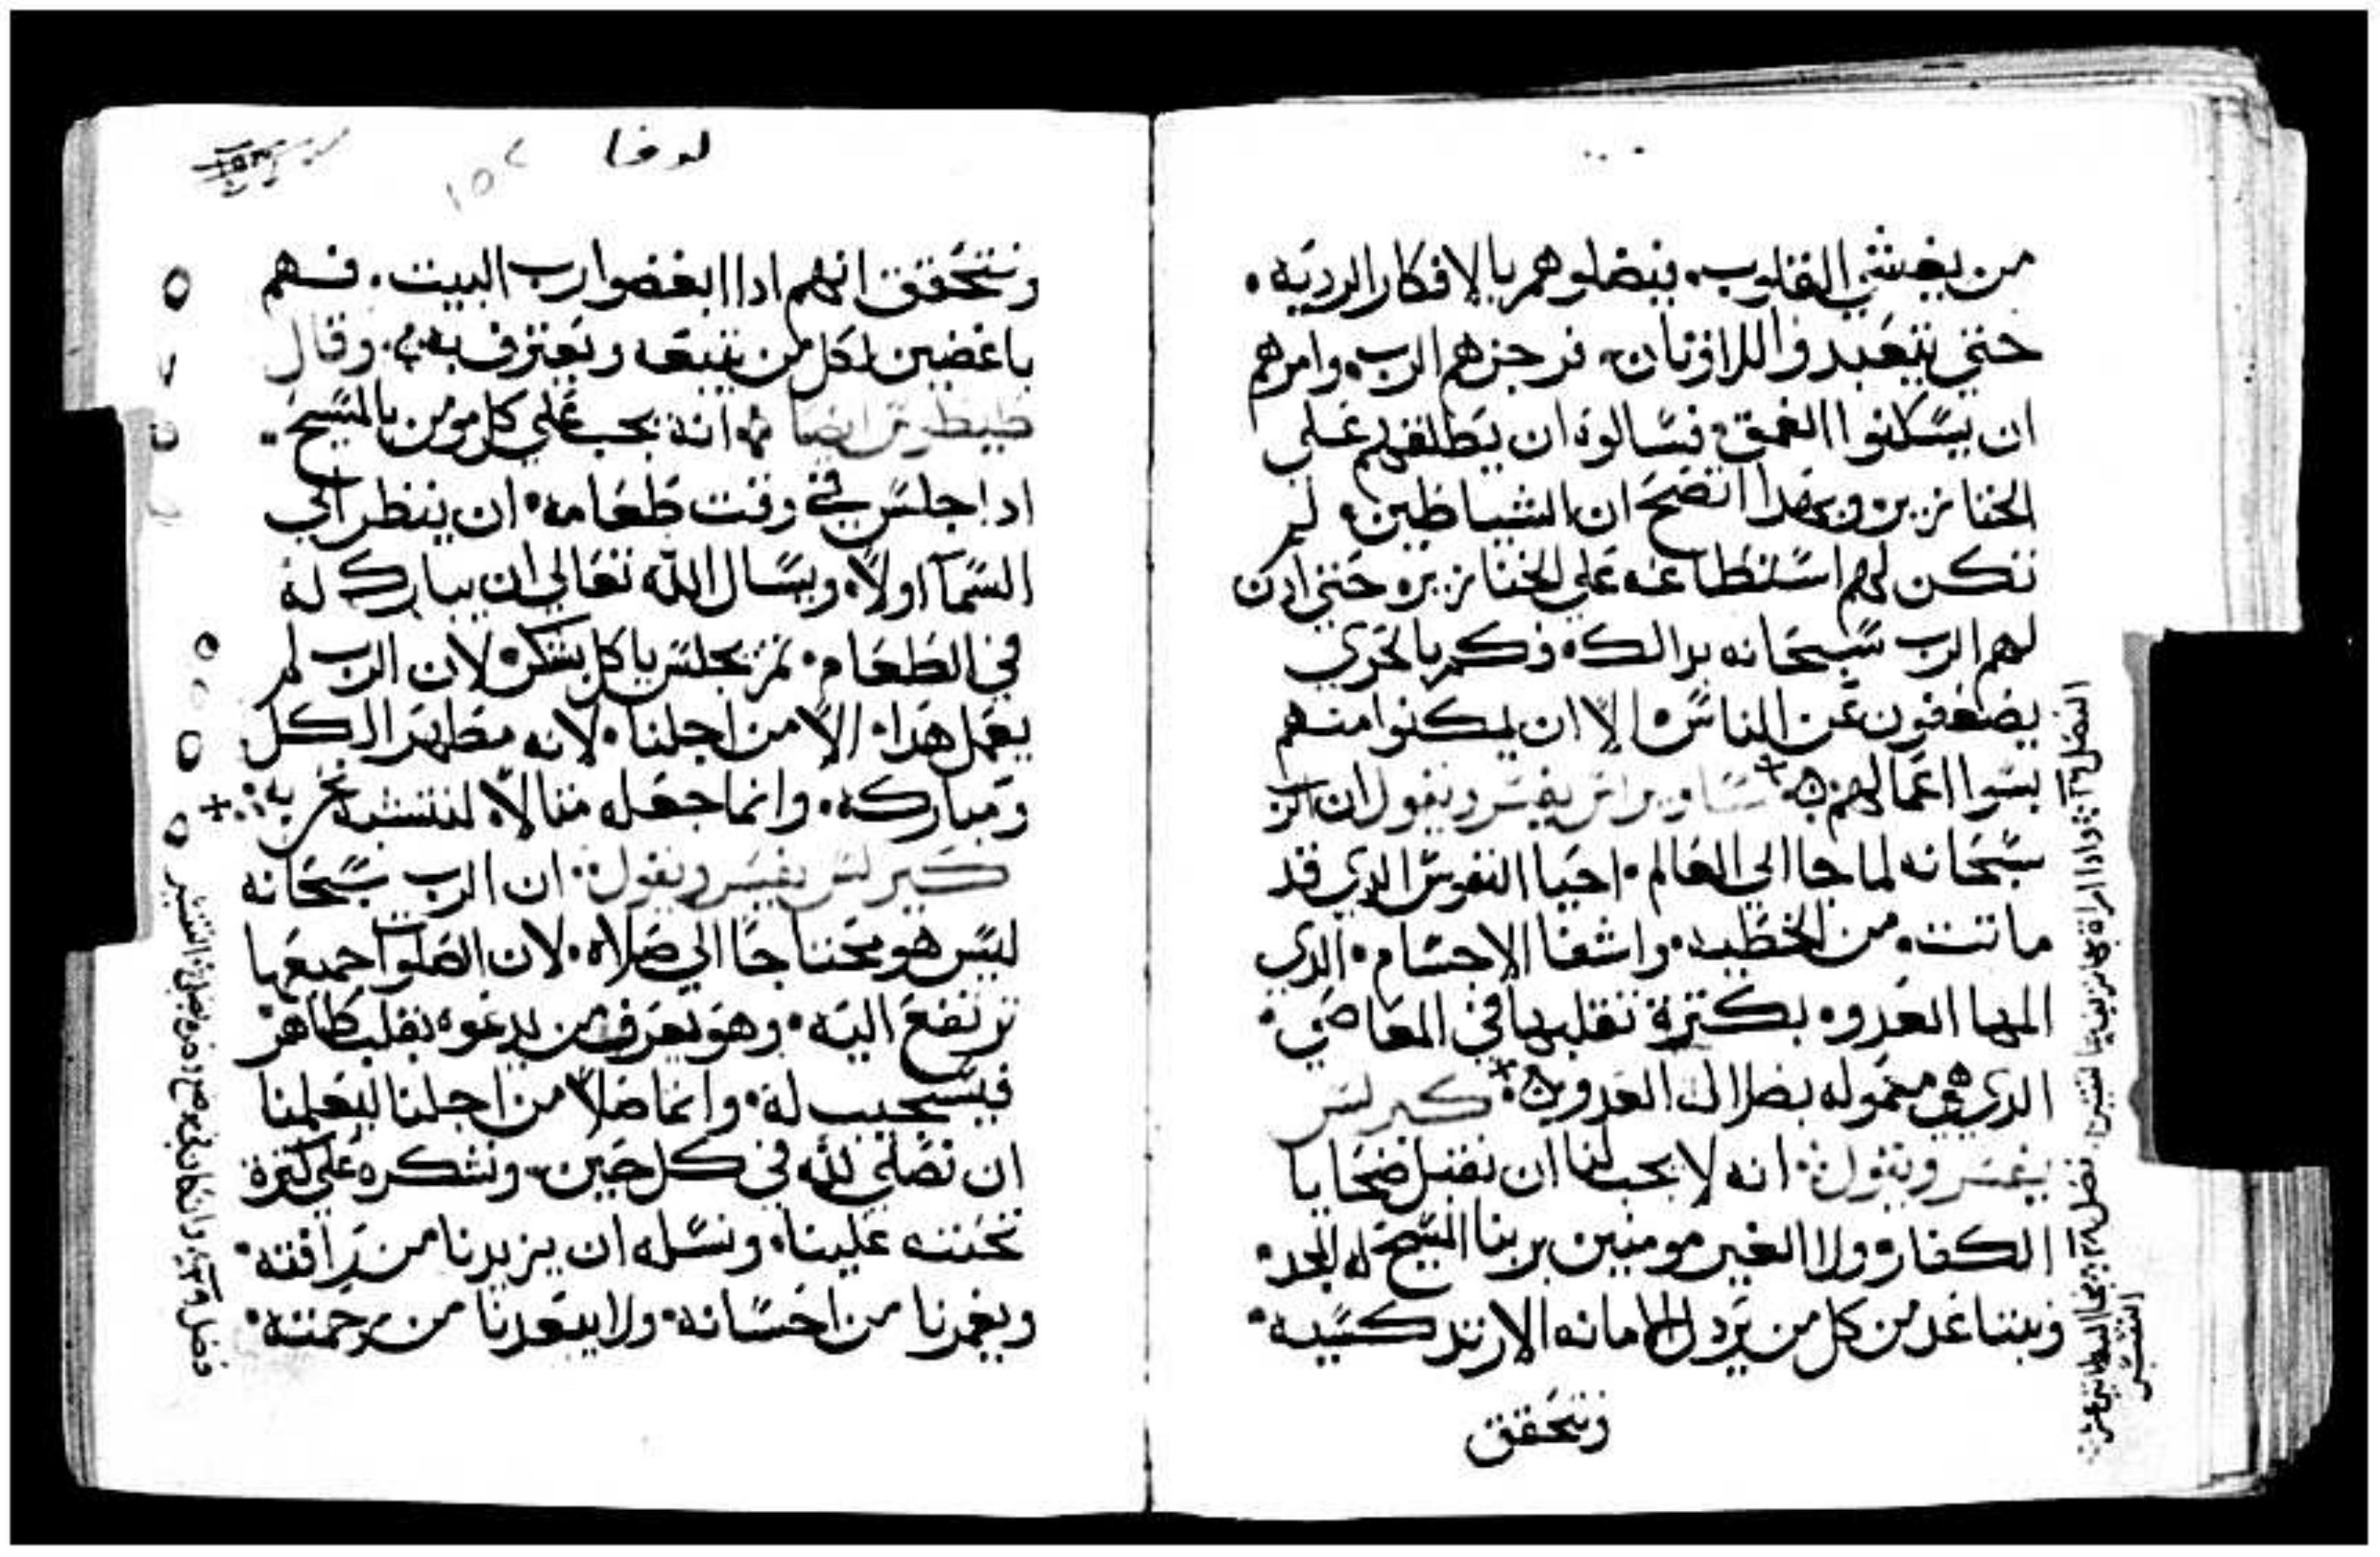 من يغشي القلوب. فيضلوهم بالافكار الرديه.
حتي يتعبدوا للاوثان. فرجزهم الرب. وامرهم
ان يسكنوا العمق. فسالوه ان يطلقهم علي
الخنازير. وبهدا اتضح ان الشياطين. لم
تكن لهم استطاعه علي الخنازير. حتي ادن
لهم الرب سبحانه بدالك. فكم بالحري
يضعفون عن الناس. الا ان يمكنوا منهم
بسوا اعمالهم. ساويرس يفسر ويقول ان الرب
سبحانه لما جا الي العالم. احيا النفوس الدي قد
ماتت. من الخطيه. واشفا الاجسام. الدي
المها العدو. بكترة تقلبها في المعاصي.
الدي هي معموله بضلالة العدو. كيرلس
يفسر ويقول. انه لا يجب لنا ان نقبل ضحايا
الكفار. ولا الغير مومنين بربنا المسيح له المجد.
ونتباعد من كل من يرد الامانه الارتدكسيه.
ونتحقق
لوقا
١٥٢
ونتحقق انهم ادا ابغضوا رب البيت. فهم
باغضين لكل من يتبعه ويعترف به. وقال
ايضا انه يجب علي كل مومن بالمسيح.
ادا جلس في وقت طعامه. ان ينظر الي
السما اولا. ويسال الله تعالي ان يبارك له
في الطعام. تم يجلس ياكل بشكر. لان الرب لم
يعمل هدا. الا من اجلنا. لانه مطهر الكل
ومباركه. وانما جعله متالا. لنتشبه نحن به.
كيرلس يفسر ويقول. ان الرب سبحانه
ليس هو محتاجا الي صلاه. لان الصلوات جميعها
ترتفع اليه. وهو يعرف من يدعوه بقلب طاهر
فيستجيب له. وانما صلا من اجلنا ليعلمنا
ان نصلي لله في كل حين. ونشكره علي كترة
تحننه علينا. ونسله ان يزيدنا من رافته.
ويغمرنا من احسانه. ولا يبعدنا من رحمته.